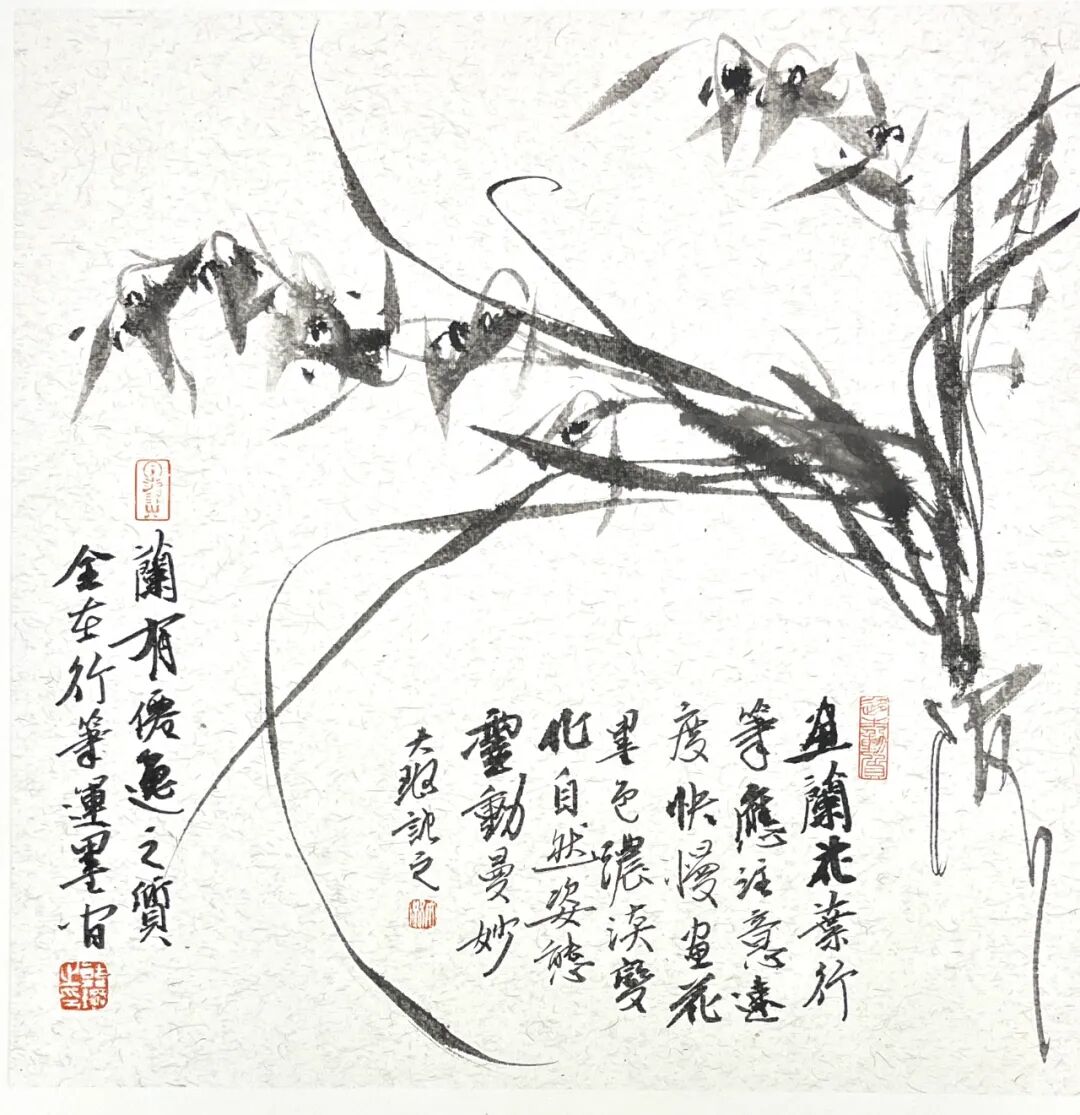 畫蘭花葉行
筆應注意速
度快慢畫花
墨色濃淡變
化自然姿態
靈動曼妙
大記之
蘭有僊逸之質
全在行筆運墨間